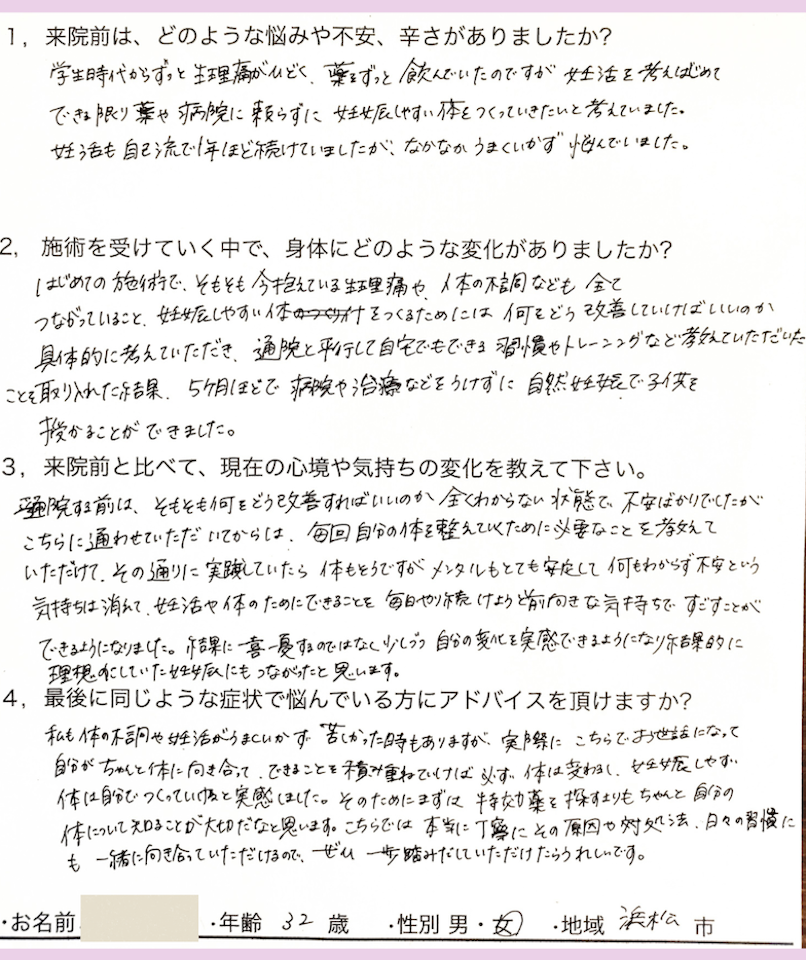 1，来院前は、どのような悩みや不安、辛さがありましたか?
学生時代からずっと生理痛がひどく、薬をずっと飲んでいたのですが妊活を考えはじめて
できる限り薬や病院に頼らずに妊娠しやすい体をつくっていきたいと考えていました。
妊活も自己流で1年ほど続けていましたが、なかなかうまくいかず悩んでいました。
2，施術を受けていく中で、身体にどのような変化がありましたか?
はじめての施術で、そもそも今抱えている生理痛や、体の不調なども全て
つながっていること、妊娠しやすい体をつくるためには何をどう改善していけばいいのか
具体的に考えていただき、通院と平行して自宅でもできる習慣やトレーニングなど教えていただいた
ことを取り入れた結果、5ヶ月ほどで病院や治療などをうけずに自然妊娠で子供を
授かることができました。
3，来院前と比べて、現在の心境や気持ちの変化を教えて下さい。
通院する前は、そもそも何をどう改善すればいいのか全くわからない状態で、不安ばかりでしたが
こちらに通わせていただいてからは、毎回自分の体を整えていくために必要なことを教えて
いただけて、その通りに実践していたら体もそうですがメンタルもとても安定して何もわからず不安という
気持ちは消えて、妊活や体のためにできることを毎日やり続けようと前向きな気持ちですごすことが
できるようになりました。結果に一喜一憂するのではなく少しずつ自分の変化を実感できるようになり結果的に
理想にしていた妊娠にもつながったと思います。
4，最後に同じような症状で悩んでいる方にアドバイスを頂けますか?
私も体の不調や妊活がうまくいかず苦しかった時もありますが、実際にこちらでお世話になって
自分がちゃんと体に向き合って、できることを積み重ねていけば必ず体は変わるし、妊娠しやすい
体は自分でつくっていけると実感しました。そのためにまずは特効薬を探すよりもちゃんと自分の
体について知ることが大切だなと思います。こちらでは本当に丁寧にその原因や対処法、日々の習慣に
も一緒に向き合っていただけるので、ぜひ一歩踏みだしていただけたらうれしいです。
・お名前 ・年齢 32 歳 ・性別 男・女 ・地域 浜松 市